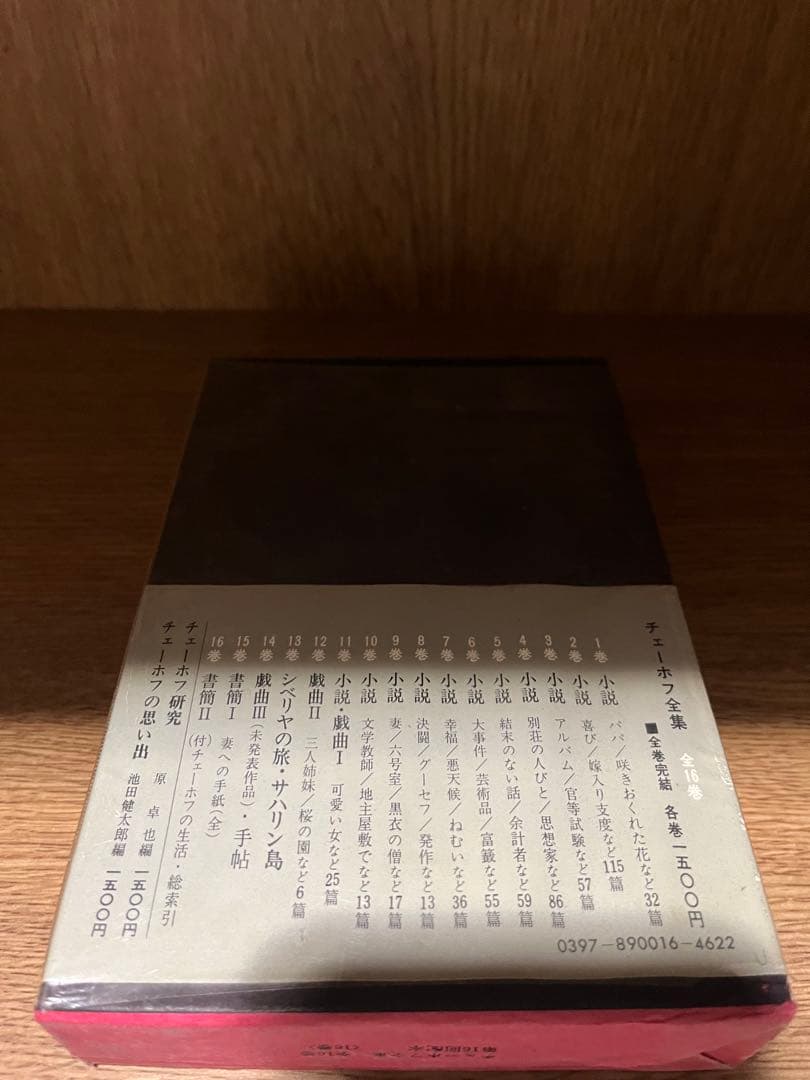 チェーホフ全集 全16巻
■全巻完結 各巻一五〇〇円
1巻 小説 パパ/咲きおくれた花など32篇
2巻 小説 喜び/嫁入り支度など115篇
3巻 小説 アルバム/官等試験など57篇
4巻 小説 別荘の人びと/思想家など86篇
5巻 小説 結末のない話/余計者など59篇
6巻 小説 大事件/芸術品/富籤など55篇
7巻 小説 幸福/悪天候/ねむいなど36篇
8巻 小説 決闘/グーセフ/発作など13篇
9巻 小説 妻/六号室/黒衣の僧など17篇
10巻 小説 文学教師/地主屋敷でなど13篇
11巻 小説・戯曲Ⅰ 可愛い女など25篇
12巻 戯曲Ⅱ 三人姉妹/桜の園など6篇
13巻 シベリヤの旅・サハリン島
14巻 戯曲Ⅲ(未発表作品)・手帖
15巻 書簡Ⅰ 妻への手紙(全)
16巻 書簡Ⅱ (付)チェーホフの生活・総索引
チェーホフ研究 原卓也編 一五〇〇円
チェーホフの思い出 池田健太郎編 一五〇〇円
0397-890016-4622
チェーホフ全集 全16巻
第16回配本 (16巻)